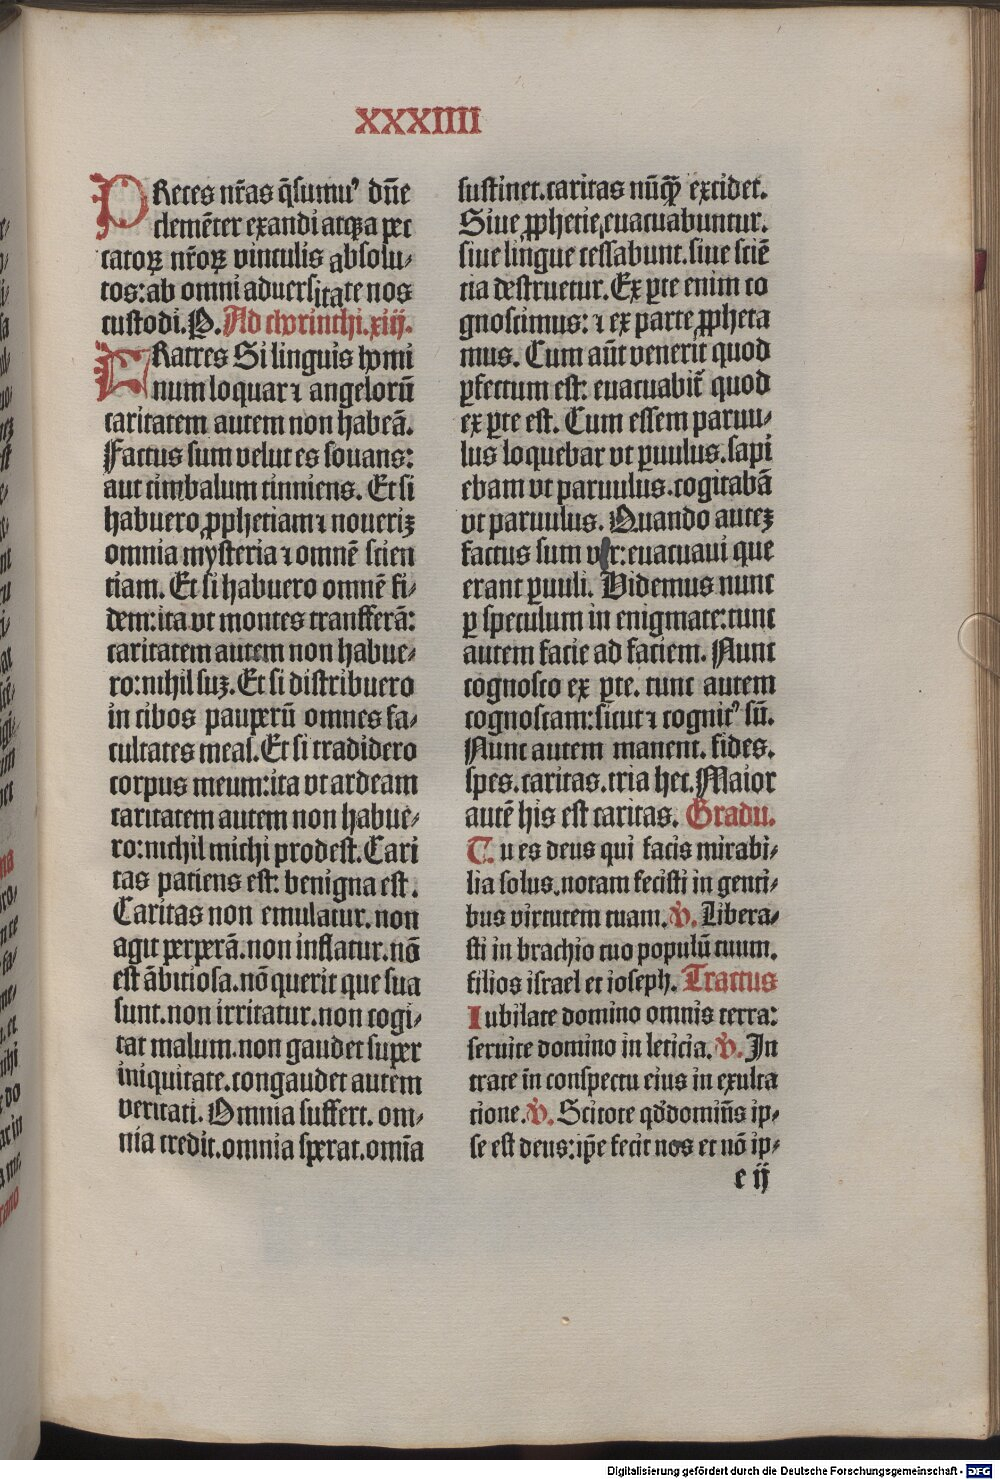 XXXIIII
PReces nr̄as q̄sumuꝰ dn̄e
clemēter exandi atqꝫ a pec
catoꝝ nr̄oꝝ vinculis absolu⸗
tos: ab omni aduersitate nos
custodi. P. Ad chorinthi. xiij.
FRatres Si linguis homi
num loquar ⁊ angelorū
caritatem autem non habeā.
Factus sum velut es souans:
aut cimbalum tinniens. Et si
habuero ꝓphetiam ⁊ noueriꝫ
omnia mysteria ⁊ omnē scien
tiam. Et si habuero omnē fi⸗
dem: ita vt montes transferā:
caritatem autem non habue⸗
ro: nihil suꝫ. Et si distribuero
in cibos pauperū omnes fa⸗
cultates meas. Et si tradidero
corpus meum: ita vt ardeam
caritatem autem non habue⸗
ro: nichil michi prodest. Cari
tas patiens est: benigna est.
Caritas non emulatur. non
agit perperā. non inflatur. nō
est ābitiosa. nō querit que sua
sunt. non irritatur. non cogi⸗
tat malum. non gaudet super
iniquitate. congaudet autem
veritati. Omnia suffert. om⸗
nia credit. omnia sperat. omīa
sustinet. caritas nūqꝫ̄ excidet.
Siue ꝓphetie euacuabuntur.
siue lingue cessabunt. siue sciē
tia destruetur. Ex ꝑte enim co
gnoscimus: ⁊ ex parte ꝓpheta
mus. Cum aūt venerit quod
ꝑfectum est: euacuabit̄ quod
ex ꝑte est. Cum essem paruu⸗
lus loquebar vt ꝑuulus. sapi
ebam vt paruulus. cogitabā
vt paruulus. Quando auteꝫ
factus sum vir: euacuaui que
erant ꝑuuli. Videmus nunc
ꝑ speculum in enigmate: tunc
autem facie ad faciem. Nunc
cognosco ex ꝑte. tunc autem
cognoscam: sicut ⁊ cognitꝰ sū.
Nunc autem manent. fides.
spes. caritas. tria hec. Maior
autē his est caritas. Gradu.
Tu es deus qui facis mirabi⸗
lia solus. notam fecisti in genti⸗
bus virtutem tuam. ℣. Libera⸗
sti in brachio tuo populū tuum.
filios israel et ioseph. Tractus
Iubilate domino omnis terra:
seruite domino in leticia. ℣. In
trate in conspectu eius in exulta
tione. ℣. Scitote qd̄ domin̄s ip⸗
se est deus: ip̄e fecit nos et nō ip⸗
e ij
Digitalisierung gefördert durch die Deutsche Forschungsgemeinschaft - DFG